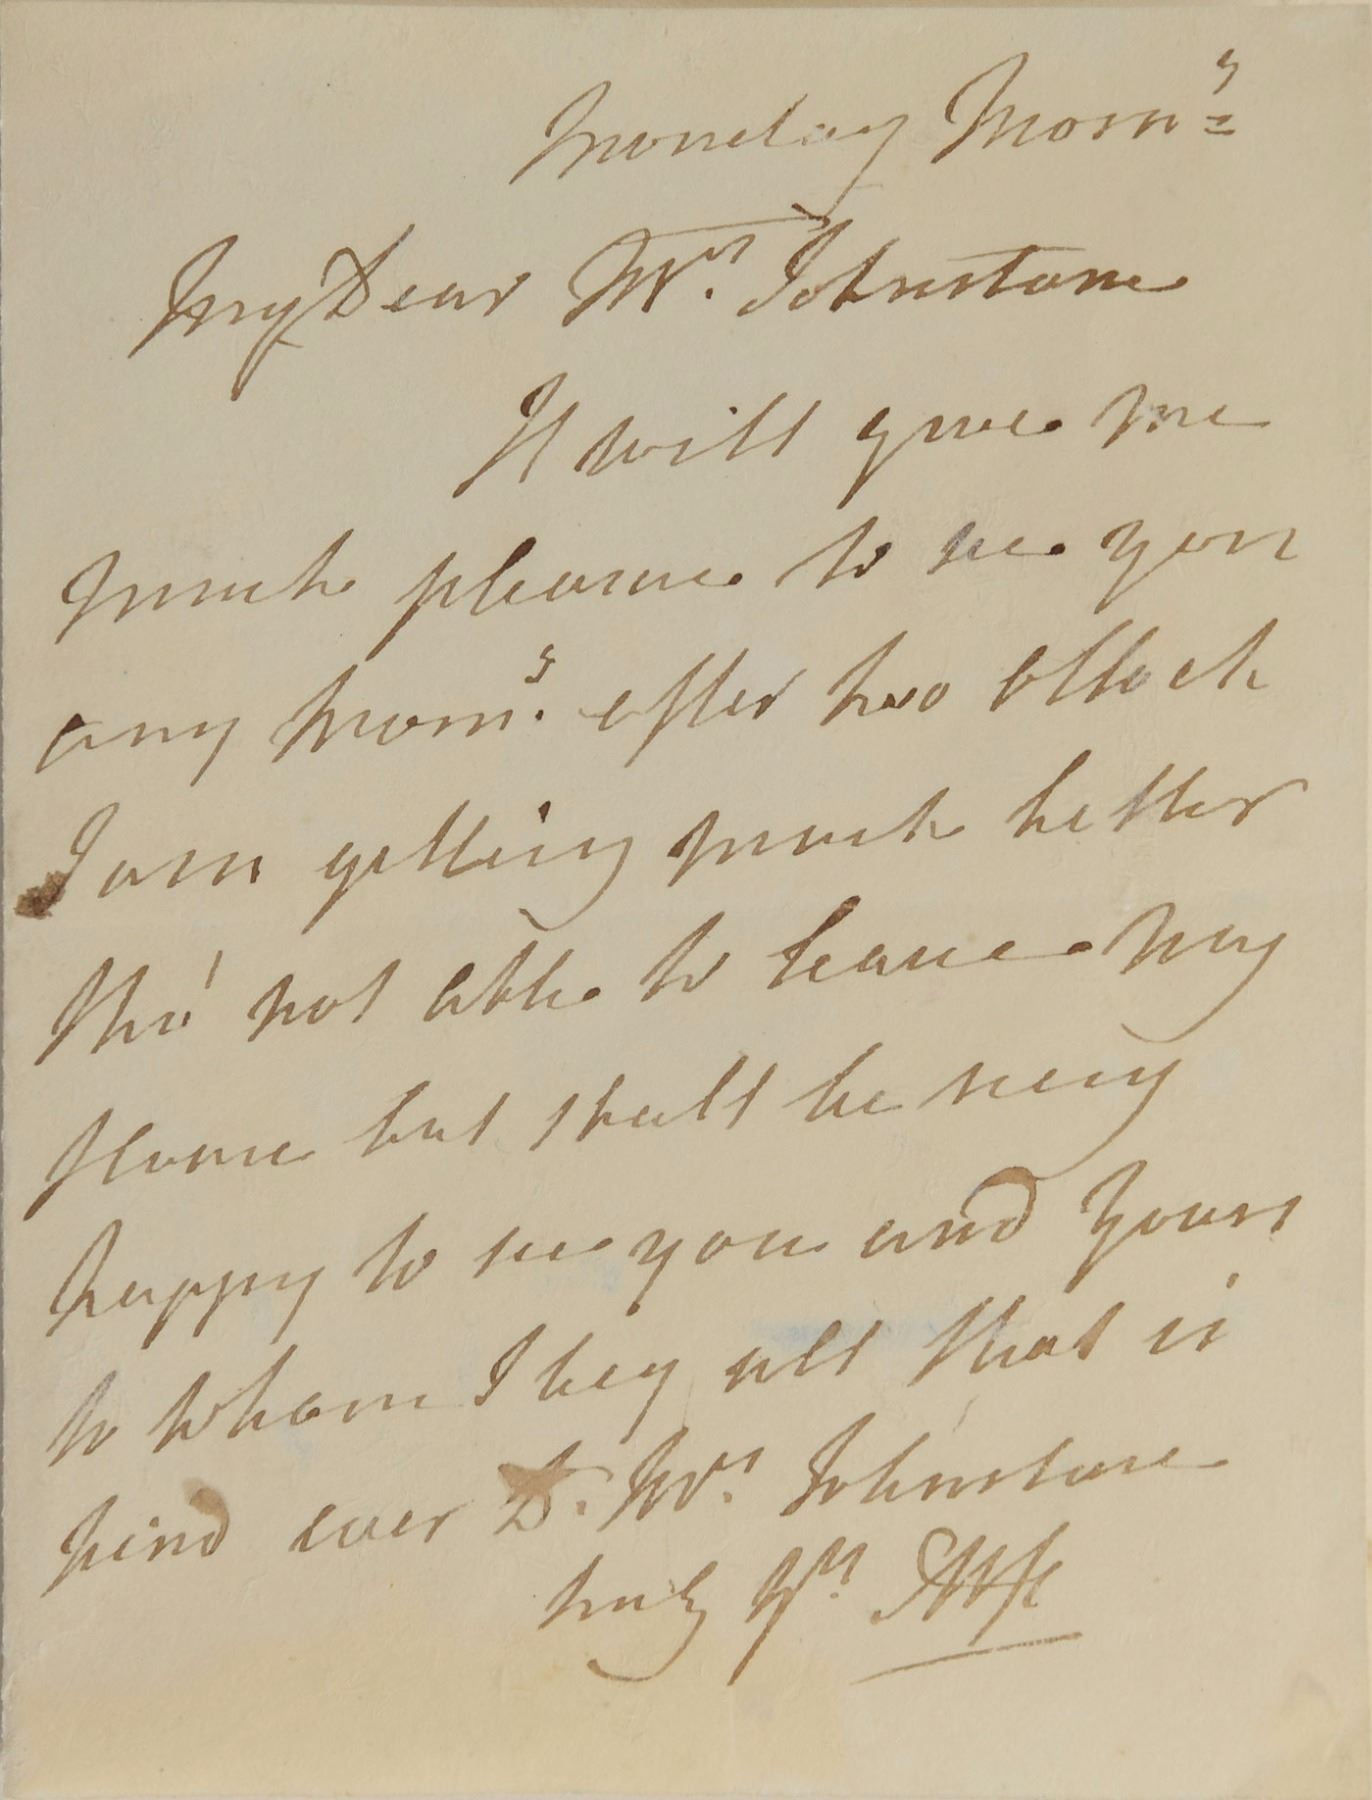 Monday Morn:g
My Dear Mrs. Johnstone
It will give me
much pleasure to see you
any morn:g after two oClock
I am getting much better
tho' not able to leave my
Home but shall be very
happy to see you and yours
to whom I beg all that is
kind ever D. Mrs. Johnstone
truly Yrs.